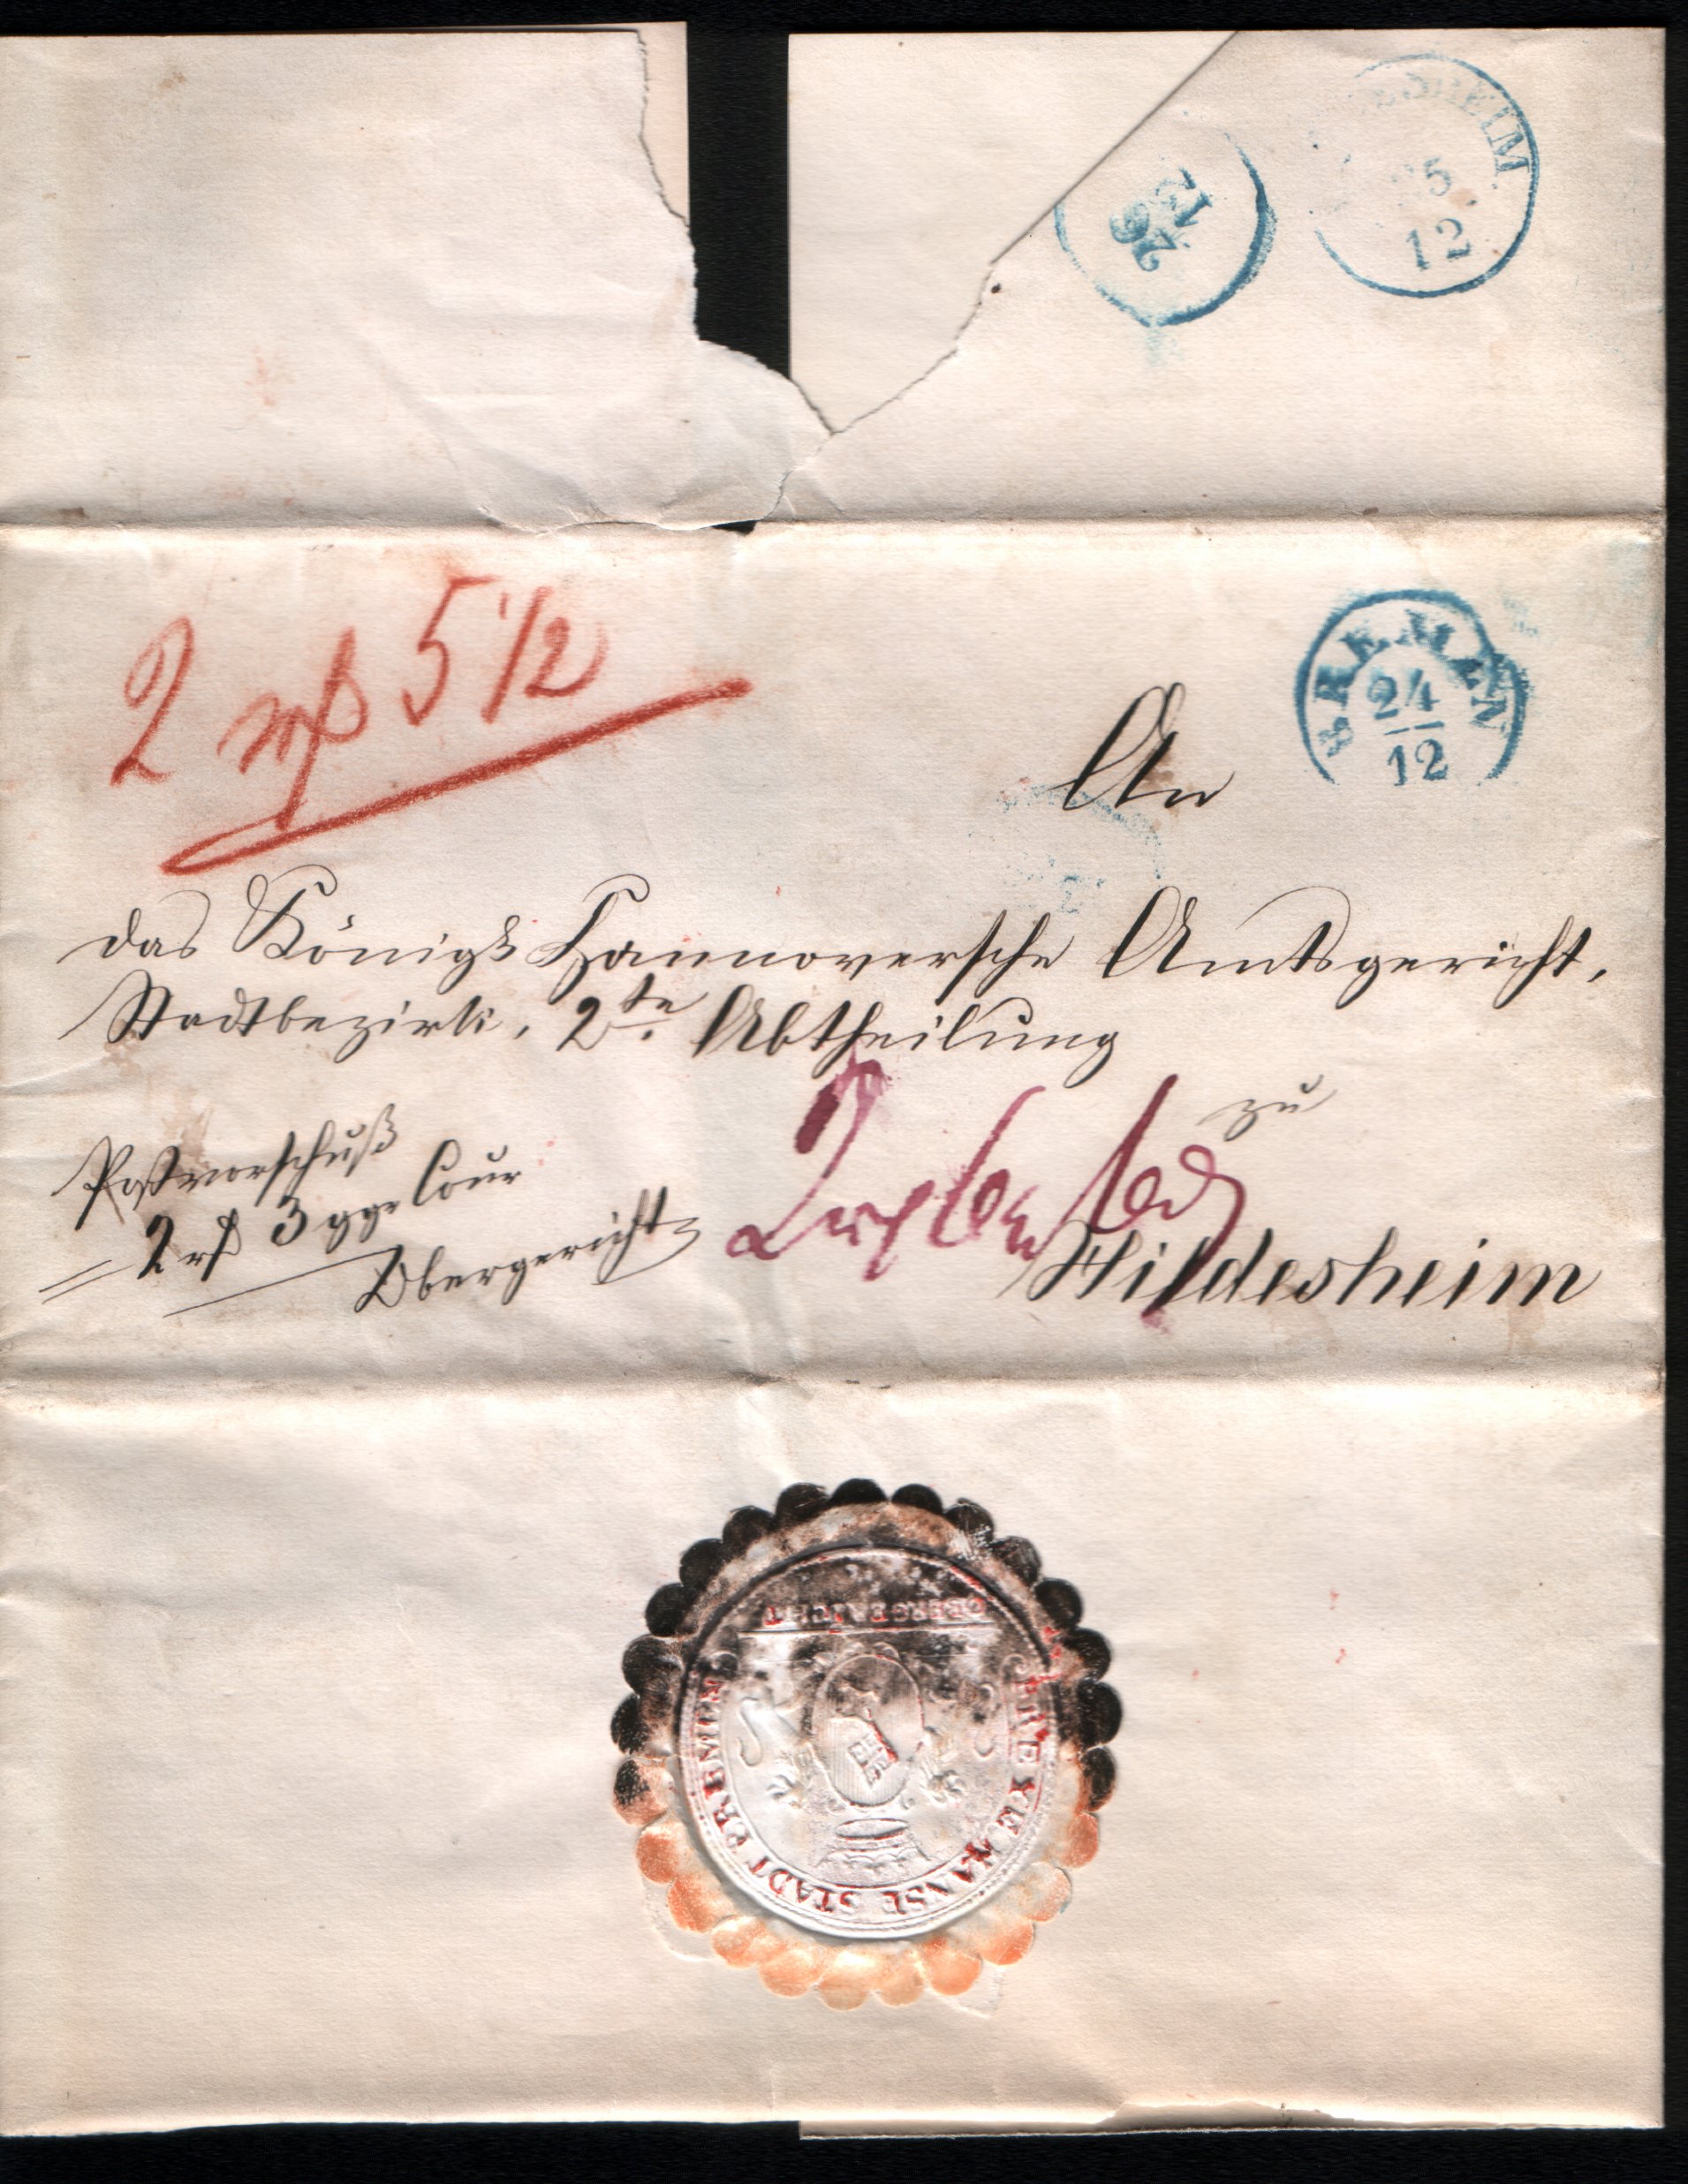 HEIM
5
12
26
12
2 rß 5 1/2
BREMEN
24
12
An
das Königl Hannoversche Amtsgericht,
Stadtbezirk, 2te. Abtheilung
zu
Postvorschuß
2 rß 3 ggr Cour
Obergericht
Hildesheim
OBERGERICHT
FREYE HANSE STADT BREMEN